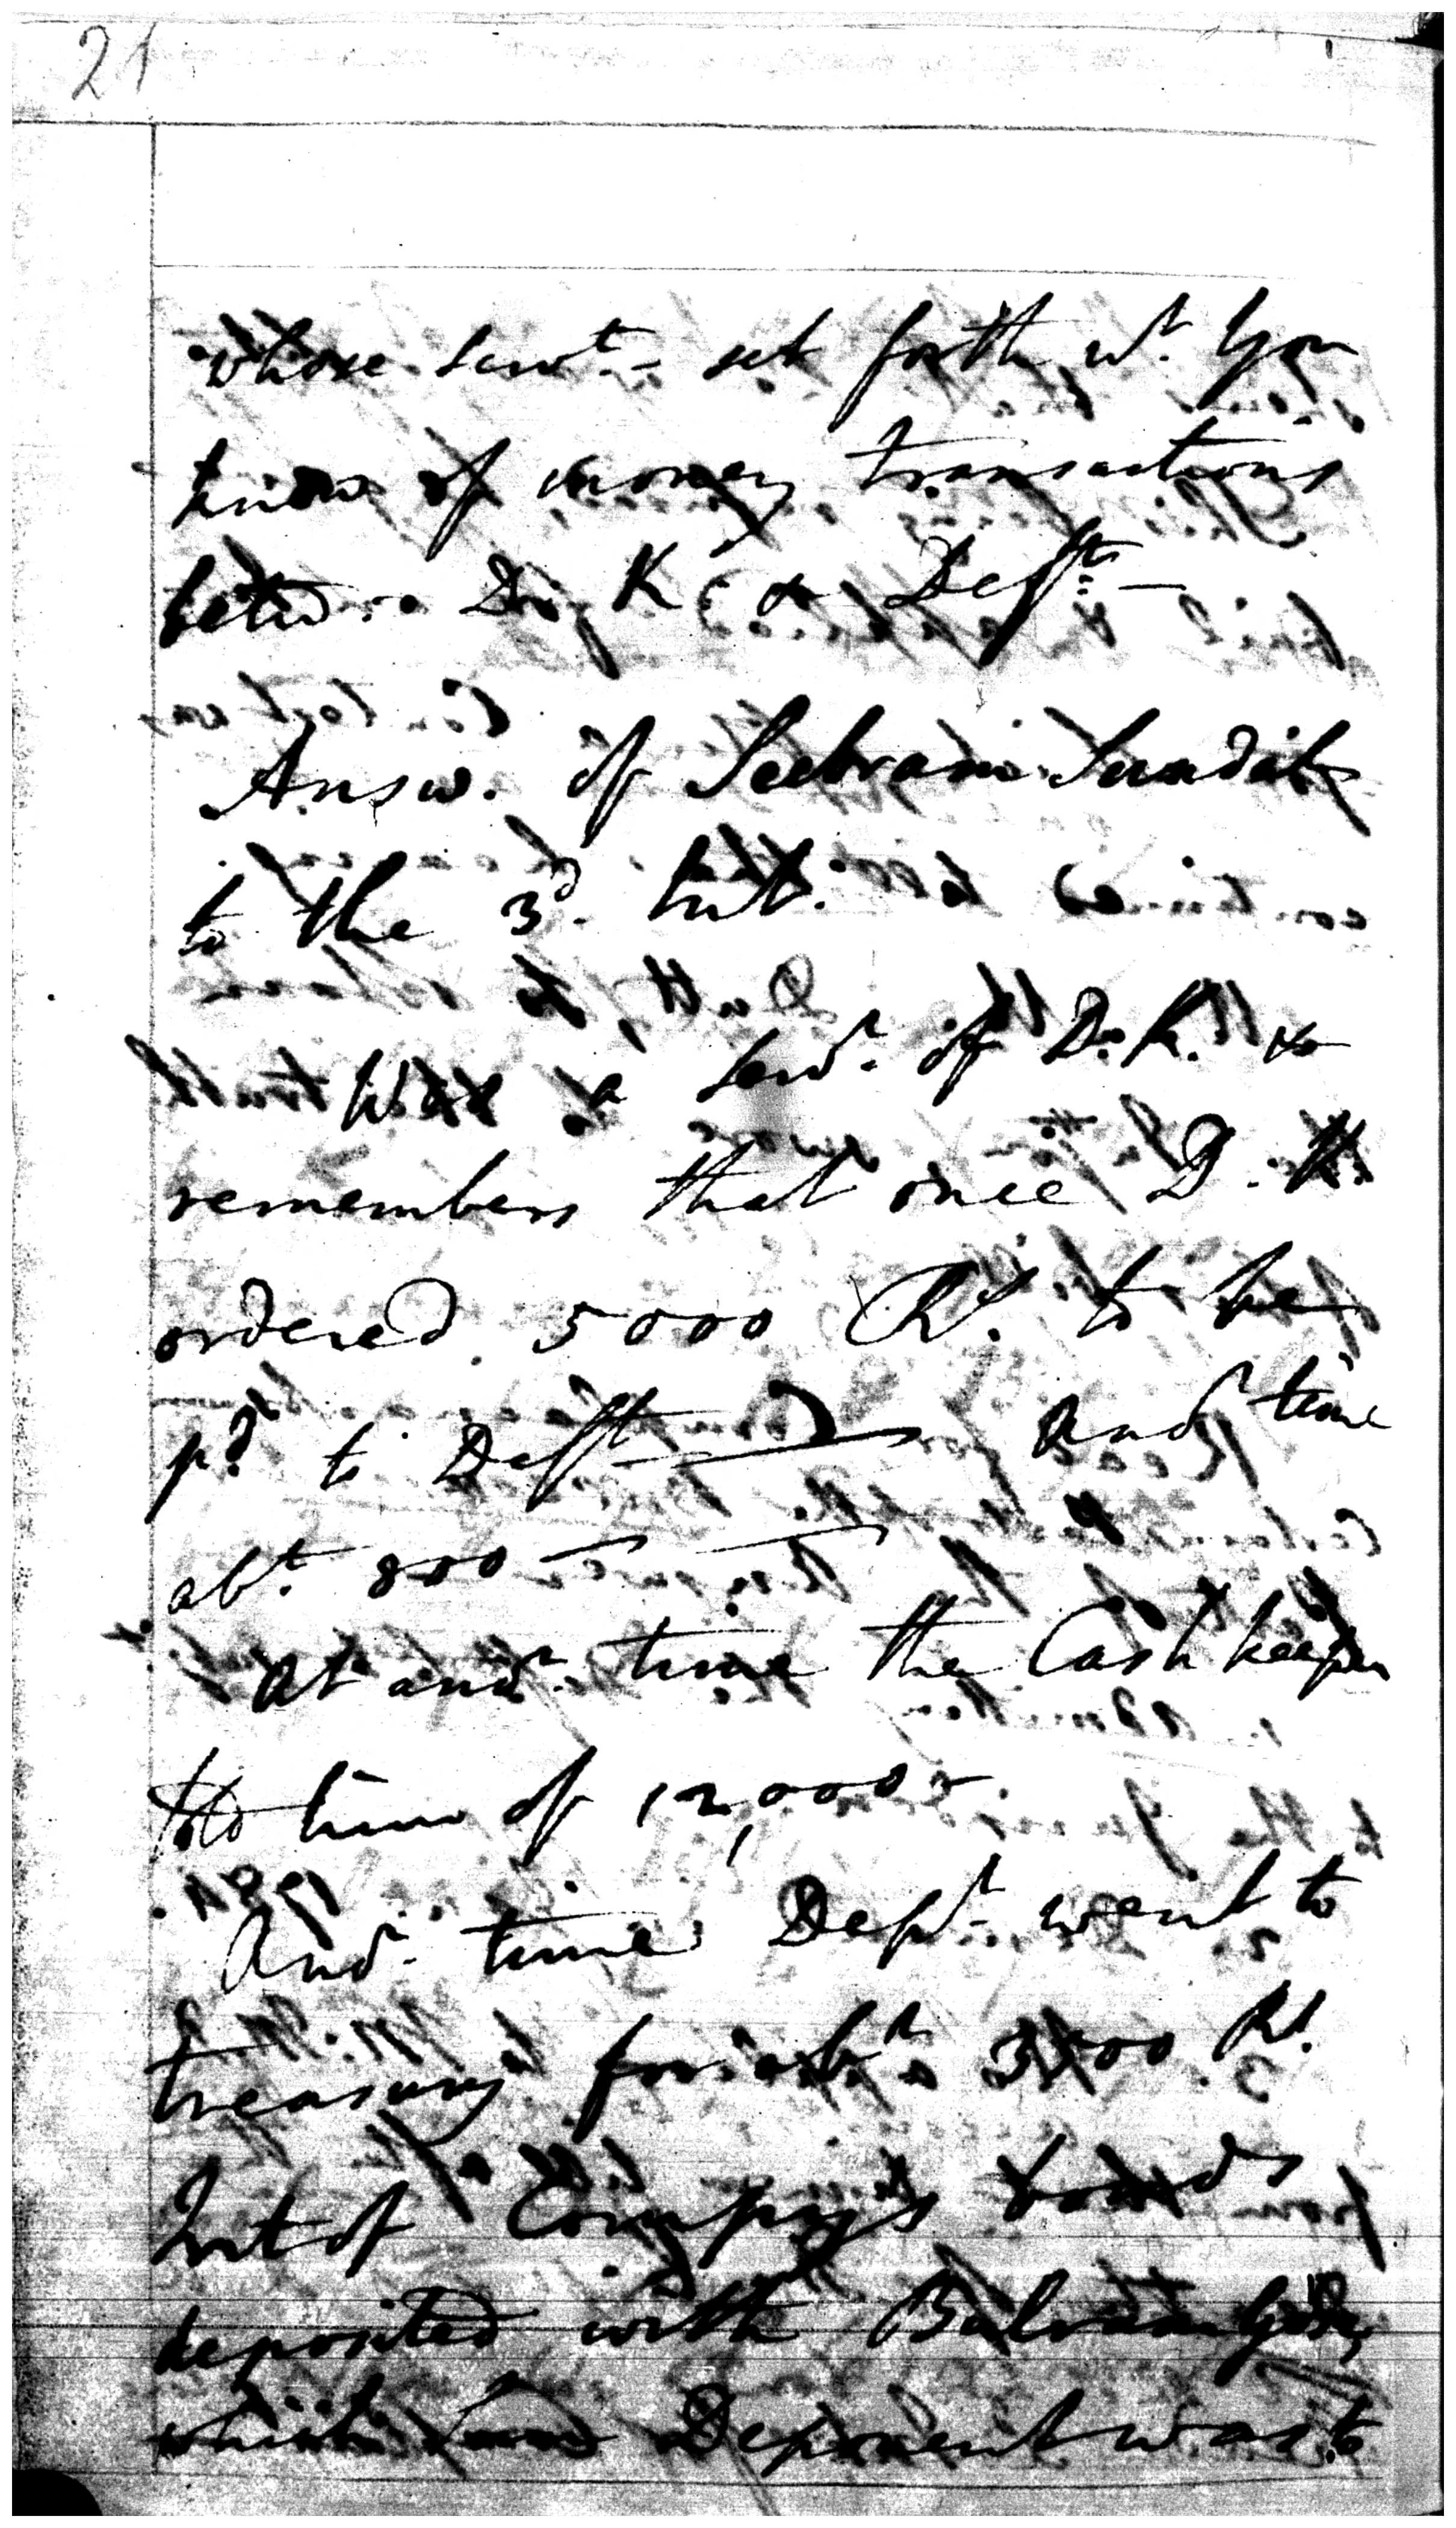 21
whose Servt. - set forth wt. you
know of money transactions
betw. D. K. & Deft. -
Answ. of Seebram
to the 3d. Int.
Was a Servt. of D. K. &
remembers that once D. K.
ordered 5000 Rs. to be
pd. to Deft. Anor time
abt. 800
At anor. time the Cash keeper
told him of 12,000
Anor. time Dept. went to
treasury for abt Rs.
Int of Compys bonds
deposited with
which Deponent was to